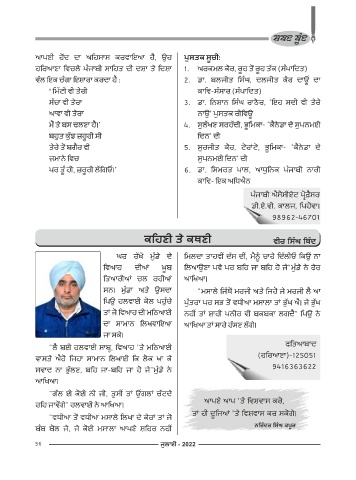 ਸ਼ਬਦ ਬੂੰਦ
ਆਪਣੀ ਹੋਂਦ ਦਾ ਅਹਿਸਾਸ ਕਰਵਾਇਆ ਹੈ, ਉਥੇ
ਹਰਿਆਣਾ ਵਿਚਲੇ ਪੰਜਾਬੀ ਸਾਹਿਤ ਦੀ ਦਸ਼ਾ ਤੇ ਦਿਸ਼ਾ
ਵੱਲ ਇਕ ਚੰਗਾ ਇਸ਼ਾਰਾ ਕਰਦਾ ਹੈ :
"ਮਿੱਟੀ ਵੀ ਤੇਰੀ
ਸੱਚਾ ਵੀ ਤੇਰਾ
ਆਵਾ ਵੀ ਤੇਰਾ
ਮੈਂ ਤੇ ਬਸ ਚਲਣਾ ਹੈ।'
ਬਹੁਤ ਕੁੱਝ ਜ਼ਰੂਰੀ ਸੀ
ਤੇਰੇ ਤੋਂ ਬਗੈਰ ਵੀ
ਜ਼ਮਾਨੇ ਵਿਚ
ਪਰ ਤੂੰ ਹੀ, ਜ਼ਰੂਰੀ ਲੱਗਿਓਂ।'
ਪੁਸਤਕ ਸੂਚੀ:
1. ਅਰਕਮਲ ਕੌਰ, ਰੂਹ ਤੋਂ ਰੂਹ ਤੱਕ (ਸੰਪਾਦਿਤ)
2. ਡਾ. ਬਲਜੀਤ ਸਿੰਘ, ਦਲਜੀਤ ਕੌਰ ਦਾਊਂ ਦਾ
ਕਾਵਿ-ਸੰਸਾਰ (ਸੰਪਾਦਿਤ)
3. ਡਾ. ਨਿਸ਼ਾਨ ਸਿੰਘ ਰਾਠੌਰ, 'ਇਹ ਸਦੀ ਵੀ ਤੇਰੇ
ਨਾਉਂ' ਪੁਸਤਕ ਰੀਵਿਊ
4. ਸੁਲੱਖਣ ਸਰਹੱਦੀ, ਭੂਮਿਕਾ- 'ਕੈਨੇਡਾ ਦੇ ਸੁਪਨਮਈ
ਦਿਨ' ਦੀ
5. ਸੁਰਜੀਤ ਕੌਰ, ਟੋਰਾਂਟੋ, ਭੂਮਿਕਾ- 'ਕੈਨੇਡਾ ਦੇ
ਸੁਪਨਮਈ ਦਿਨ' ਦੀ
6. ਡਾ. ਸਿਮਰਤ ਪਾਲ, ਆਧੁਨਿਕ ਪੰਜਾਬੀ ਨਾਰੀ
ਕਾਵਿ- ਇਕ ਅਧਿਐਨ
ਪੰਜਾਬੀ ਐਸੋਸੀਏਟ ਪ੍ਰੋਫੈਸਰ
ਡੀ.ਏ.ਵੀ. ਕਾਲਜ, ਪਿਹੋਵਾ।
98962-46701
ਕਹਿਣੀ ਤੇ ਕਥਣੀ
ਵੀਰ ਸਿੰਘ ਥਿੰਦ
ਘਰ ਰੱਖੇ ਮੁੰਡੇ ਦੇ
ਵਿਆਹ ਦੀਆਂ ਖੂਬ
ਤਿਆਰੀਆਂ ਚਲ ਰਹੀਆਂ
ਸਨ। ਮੁੰਡਾ ਅਤੇ ਉਸਦਾ
ਪਿਉ ਹਲਵਾਈ ਕੋਲ ਪਹੁੰਚੇ
ਤਾਂ ਜੋ ਵਿਆਹ ਦੀ ਮਠਿਆਈ
ਦਾ ਸਾਮਾਨ ਲਿਖਵਾਇਆ
ਜਾ ਸਕੇ।
"ਲੈ ਬਈ ਹਲਵਾਈ ਸਾਬ੍ਹ, ਵਿਆਹ 'ਤੇ ਮਠਿਆਈ
ਵਾਸਤੇ ਐਹੋ ਜਿਹਾ ਸਾਮਾਨ ਲਿਆਈਂ ਕਿ ਲੋਕ ਖਾ ਕੇ
ਸਵਾਦ ਨਾ ਭੁੱਲਣ, ਬਹਿ ਜਾ-ਬਹਿ ਜਾ ਹੋ ਜੇ" ਮੁੰਡੇ ਨੇ
ਆਖਿਆ।
"ਗੱਲ ਈ ਕੋਈ ਨੀ ਜੀ, ਤੁਸੀਂ ਤਾਂ ਉਂਗਲਾਂ ਚੱਟਦੇ
ਰਹਿ ਜਾਵੋਂਗੇ" ਹਲਵਾਈ ਨੇ ਆਖਿਆ।
"ਵਧੀਆ ਤੋਂ ਵਧੀਆ ਮਸਾਲੇ ਲਿਖਾ ਦੇ ਕੇਰਾਂ ਤਾਂ ਜੇ
ਥੱਬ ਥੋਲ ਜੇ, ਜੇ ਕੋਈ ਮਸਾਲਾ ਆਪਣੇ ਸ਼ਹਿਰ ਨਹੀਂ
ਮਿਲਦਾ ਤਾਹਵੀਂ ਦੱਸ ਦੀਂ, ਮੈਨੂੰ ਚਾਹੇ ਦਿੱਲੀਓਂ ਕਿਉਂ ਨਾ
ਲਿਆਉਣਾ ਪਵੇ ਪਰ ਬਹਿ ਜਾਂ ਬਹਿ ਹੋ ਜੇ" ਮੁੰਡੇ ਨੇ ਫੇਰ
ਆਖਿਆ।
"ਮਸਾਲੇ ਜਿੱਥੋਂ ਮਰਜੀ ਅਤੇ ਜਿਹੋ ਜੇ ਮਰਜੀ ਲੈ ਆ
ਪੁੱਤਰਾ ਪਰ ਸਭ ਤੋਂ ਵਧੀਆ ਮਸਾਲਾ ਤਾਂ ਭੁੱਖ ਐ। ਜੇ ਭੁੱਖ
ਨਹੀਂ ਤਾਂ ਸ਼ਾਹੀ ਪਨੀਰ ਵੀ ਬਕਬਕਾ ਲਗਦੈ" ਪਿਉ ਨੇ
ਆਖਿਆ ਤਾਂ ਸਾਰੇ ਹੱਸਣ ਲੱਗੇ।
ਫਤਿਆਬਾਦ
(ਹਰਿਆਣਾ)-125051
9416363622
ਆਪਣੇ ਆਪ 'ਤੇ ਵਿਸ਼ਵਾਸ ਕਰੋ,
ਤਾਂ ਹੀ ਦੂਜਿਆਂ 'ਤੇ ਵਿਸ਼ਵਾਸ ਕਰ ਸਕੋਗੇ।
ਨਰਿੰਦਰ ਸਿੰਘ ਕਪੂਰ
56
ਜੁਲਾਈ - 2022